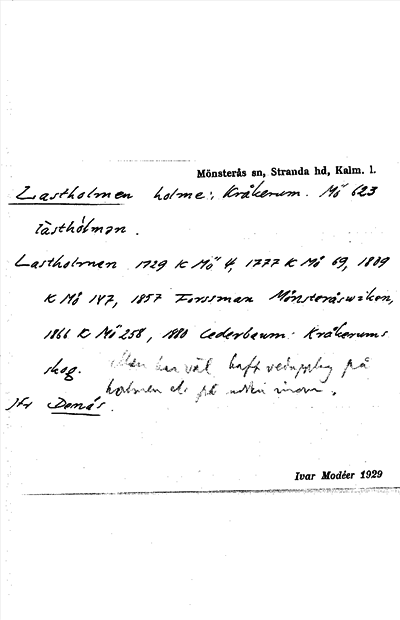 Mönsterås sn, Stranda hd, Kalm. l.
Lastholmen holme, Kråkerum. Mö 623
làsthólmən.
Lastholmen 1729 K Mö 4, 1777 K Mö 69, 1809
K Mö 147, 1857 Forssman Mönsteråswiken,
1866 K Mö 258, 1880 Cederbaum: Kråkerums
skog. Man har väl haft vedupplag på
holmen el. på udden
Jfr Donås.
Ivar Modéer 1929